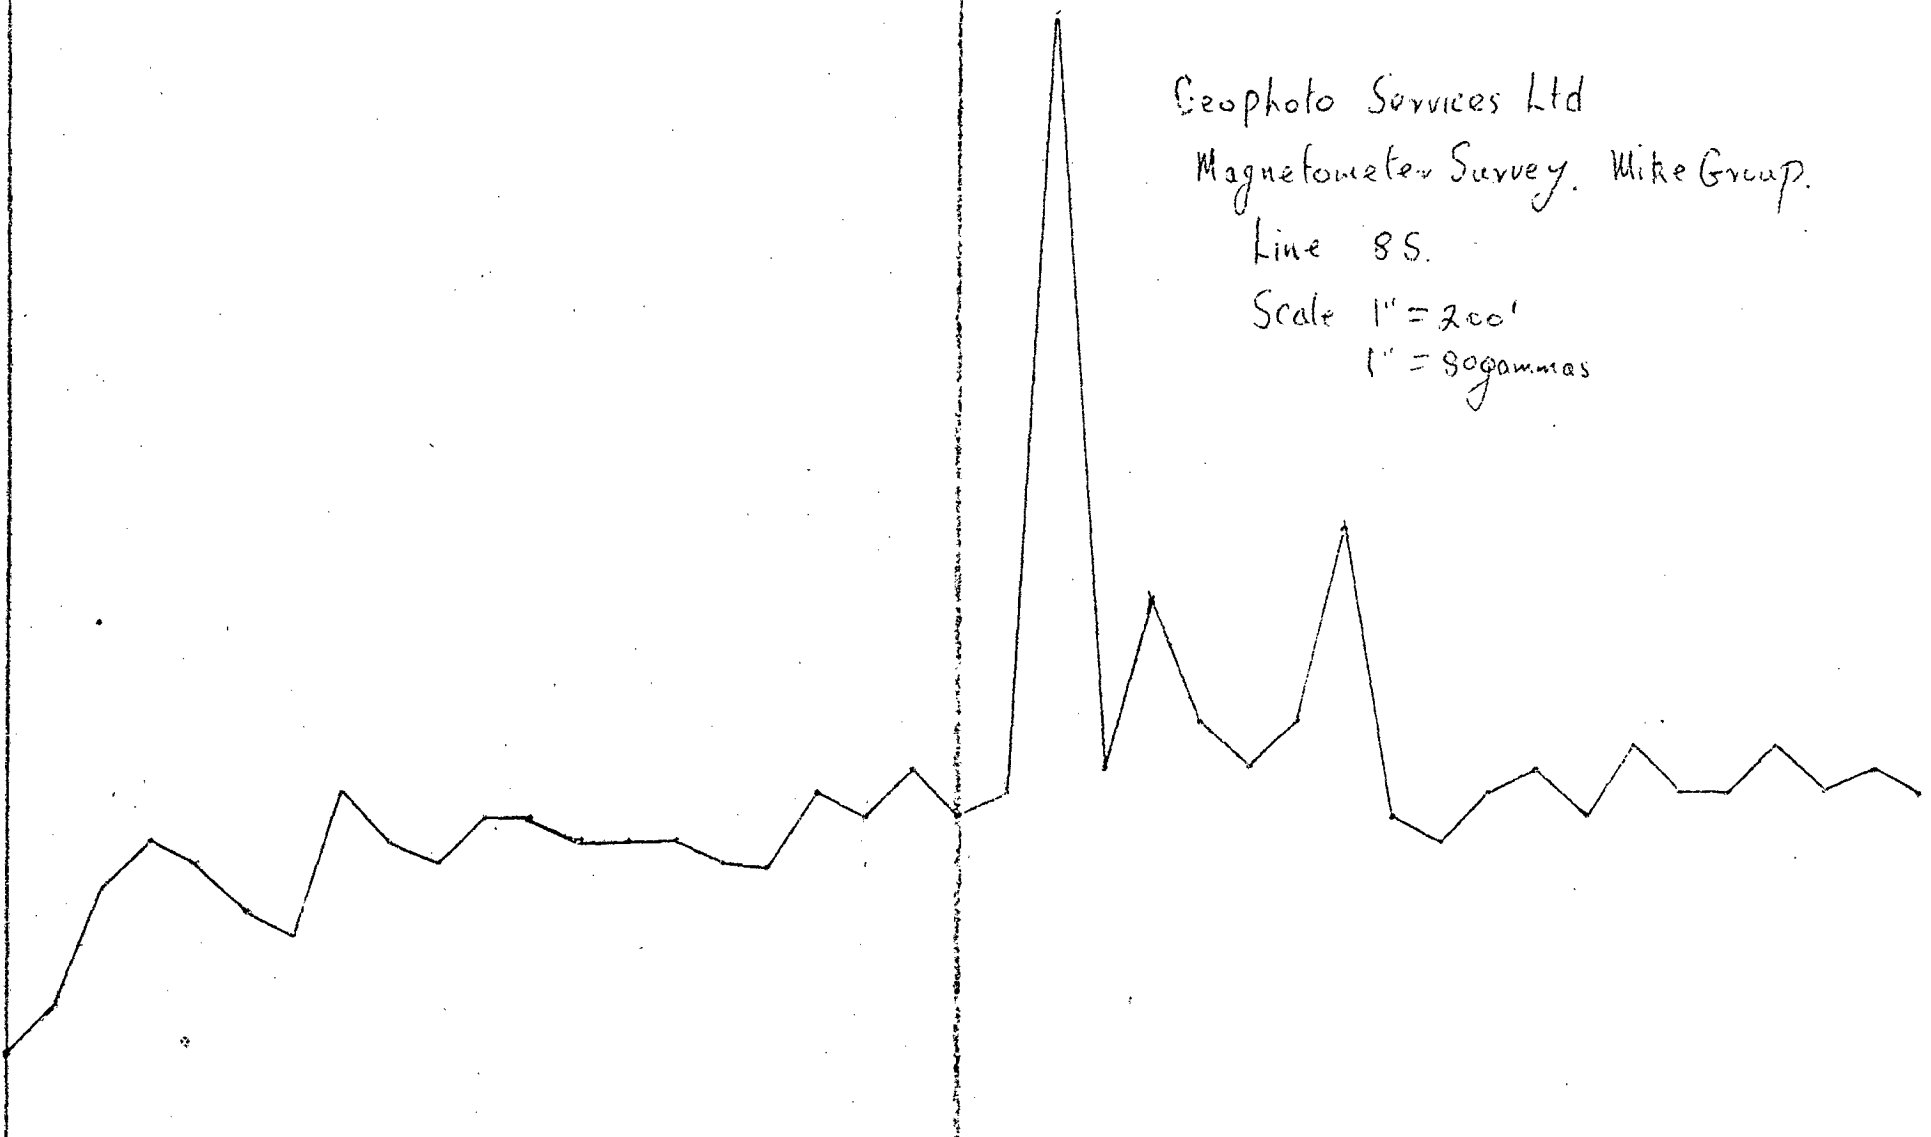 Geophoto Services Ltd
Magnetometer Survey. Mike Group.
Line 8S.
Scale 1" = 200'
1" = 80gammas